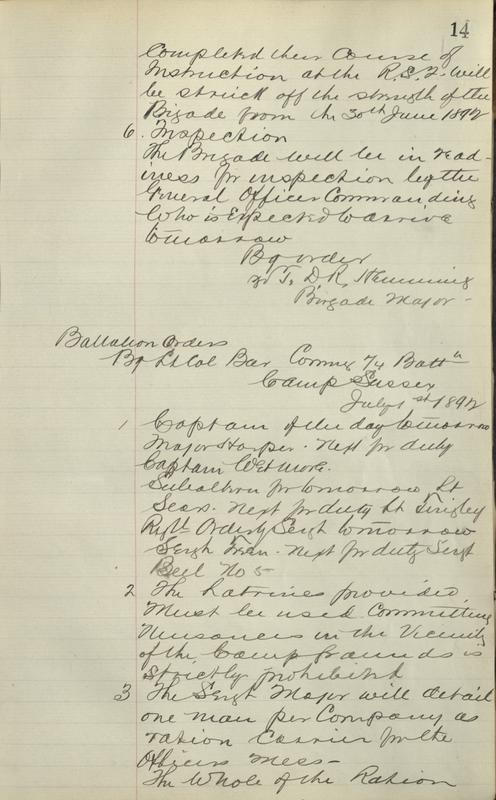 14
Completed their Course of
Instruction at the R.S.I. will
be struck off the strength of the
Brigade from the 30th June 1892
6. Inspection
The Brigade will be in read-
iness for inspection by the
General Officer Commanding
Who is Expected to arrive
tomorrow
By order
D.R. Hemming
Brigade Major -
Battalion Orders
By Lt Col Comng 74 Battn
Camp Sussex
July 1st 1892
1 Captain of the day tomorrow
Major Harper. Next for duty
Captain Wetmore.
Subaltern for tomorrow Lt
Sears. Next for duty Lt Tingley
Regtl Orderly Sergt tomorrow
Sergt . Next for duty Sergt
No 5
2 The Latrines provided
Must be used Committing
Nuisances in the Vicinity
of the Camp Grounds is
strictly prohibited
3 The Sergt Major will detail
one man per Company as
ration Carrier for the
Officers Mess -
The Whole of the Ration